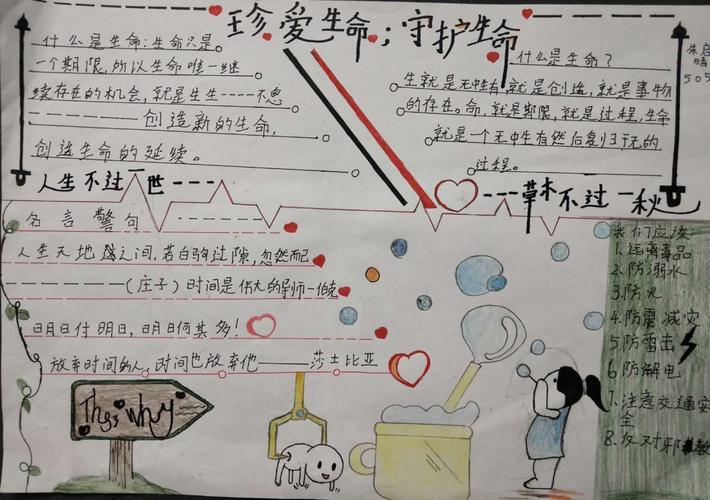 珍爱生命；守护生命
什么是生命：生命只是
一个期限，所以生命唯一继
续存在的机会，就是生生-----不息
----------创造新的生命，
创造生命的延续。
人生不过一世----
什么是生命？
生就是无中生有，就是创造，就是事物
的存在。命，就是期限，就是过程，生命
就是一个无中生有然后复归于无的
过程。
---草木不过一秋
朱启
晴
505
名言警句
人生天地之间，若白驹过隙，忽然而已
----------（庄子）时间是伟大的导师一伯克
明日付明日，明日何其多！
放弃时间的人，时间也放弃他———莎士比亚
我们应该
1.远离毒品
2.防溺水
3.防火
4.防震减灾
5防雷击
6防解电
7.注意交通安
全
8.反对邪教